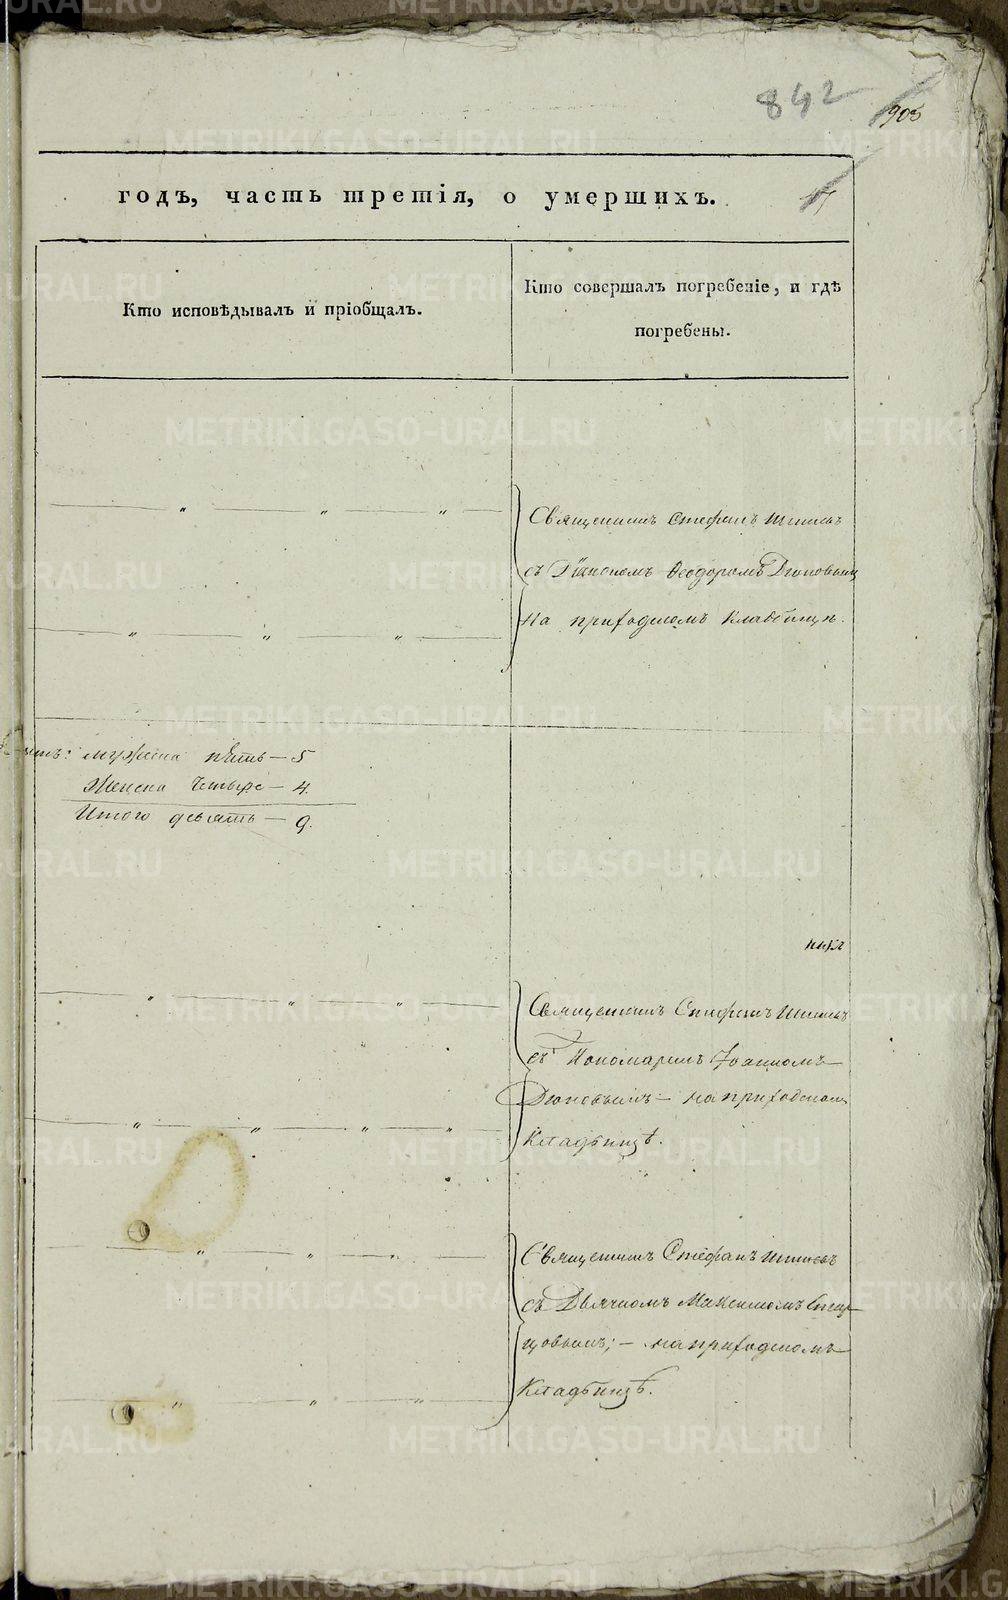 842
903
годъ, часть третія, о умершихъ.
Кто исповѣдывалъ и пріобщалъ.
Кто совершалъ погребеніе, и гдѣ
погребены.
Священникъ Стефанъ
съ Дiакономъ Феодоромъ
на приходскомъ кладбищѣ.
мужеска пять — 5
Женска Четыре — 4.
Итого девять — 9.
Священникъ Стефанъ
съ Пономаремъ Iоанномъ
на приходскомъ
Кладбищѣ.
Священникъ Стефанъ
съ Дьячкомъ Максимомъ
цовымъ; — на приходскомъ
Кладбищѣ.
METRIKI.GASO-URAL.RU